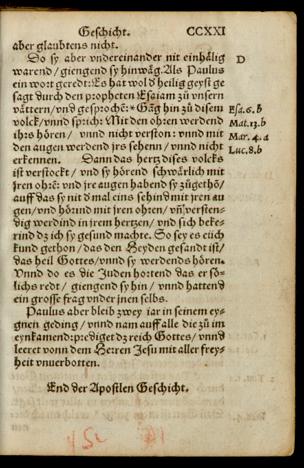 Geschicht. CCXXI
aber glaubtens nicht.
Do sy aber vndereinander nit einhälig D
warend / giengend sy hinwäg. Als Paulus
ein wort geredt: Es hat wol d heilig geyst ge
sagt durch den propheten Esaiam zů vnsern
vättern / vnd gesprochē: * Gāg hin zů disem Esa. 6. b
volck / vnnd sprich: Mit den ohren werdend Mat. 13. b
jhrs hören / vnnd nicht verston: vnnd mit Mar. 4. a
den augen werdend jrs sehenn / vnnd nicht Luc. 8. b
erkennen. Dann das hertz dises volcks
ist verstockt / vnd sy hörend schwårlich mit
jren ohrē: vnd jre augen habend sy zůgethō /
auff das sy nit dmal eins sehind mit jren au
gen / vnd hörind mit jren ohren / vñ versten-
dig werdind in jrem hertzen / vnd sich beke-
rind dz ich sy gesund machte. So sey es eüch
kund gethon / das den Heyden gesandt ist /
das heil Gottes / vnnd sy werdends hören.
Vnnd do es die Juden hortend das er sö-
lichs redt / giengend sy hin / vnnd hattend
ein grosse frag vnder jnen selbs.
Paulus aber bleib zwey iar in seinem ey-
gnen geding / vnnd nam auff alle die zů im
eynkamend: prediget dz reich Gottes / vnnd
leeret vonn dem Herren Jesu mit aller frey-
heit vnuerbotten.
End der Apostlen Geschicht.